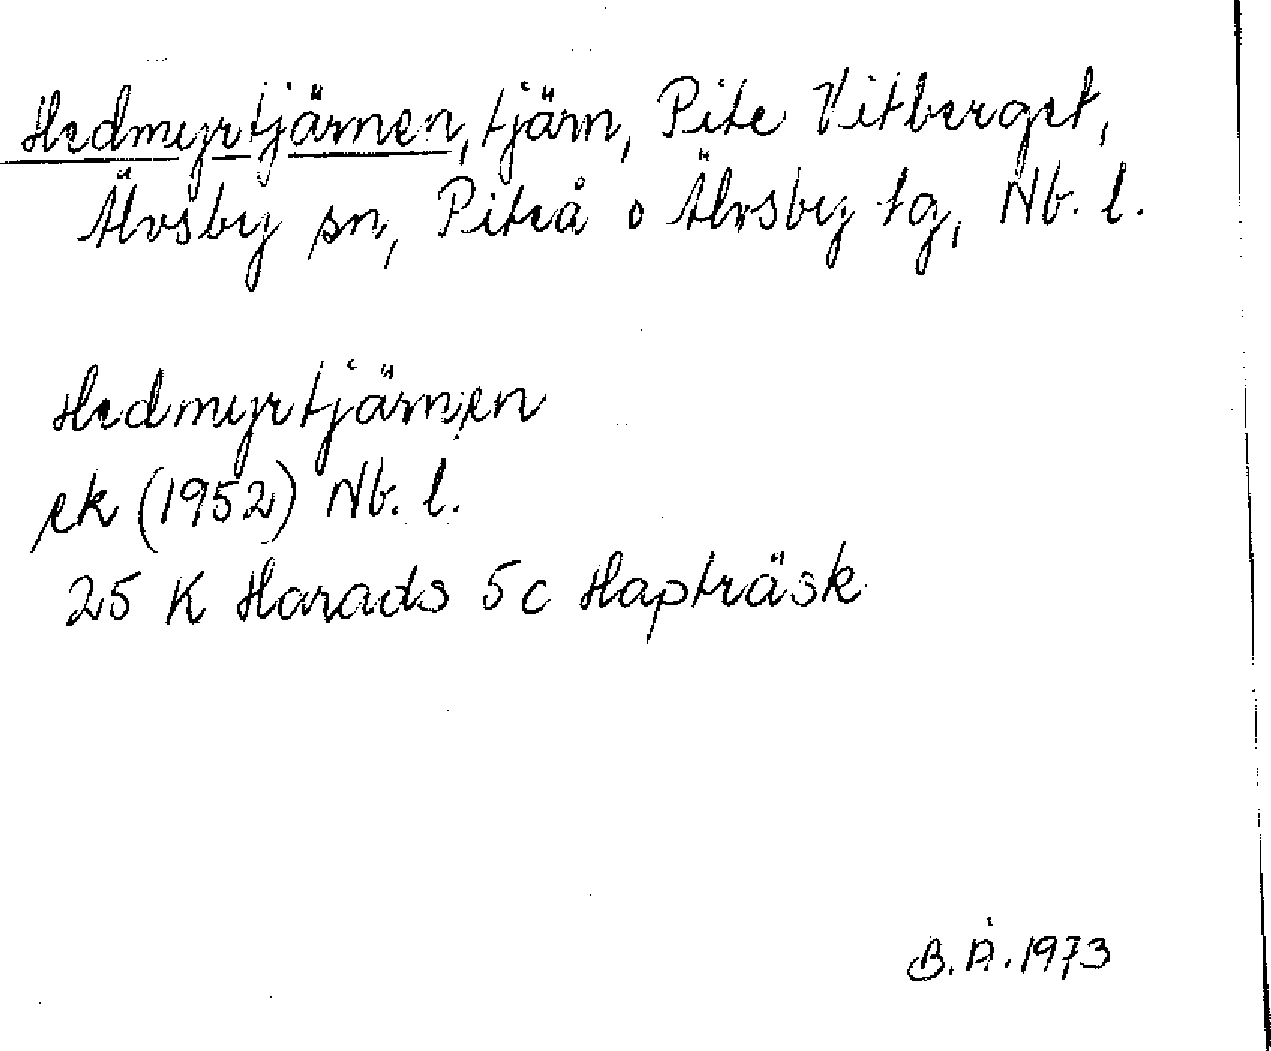 Hedmyrtjärnen, tjärn, Pite Vitberget,
Älvsby sn, Piteå o Älvsby tg, Nb. l.
Hedmyrtjärnen
ek (1952) Nb. l.
25 K Harads 5c Hapträsk
B.Å. 1973